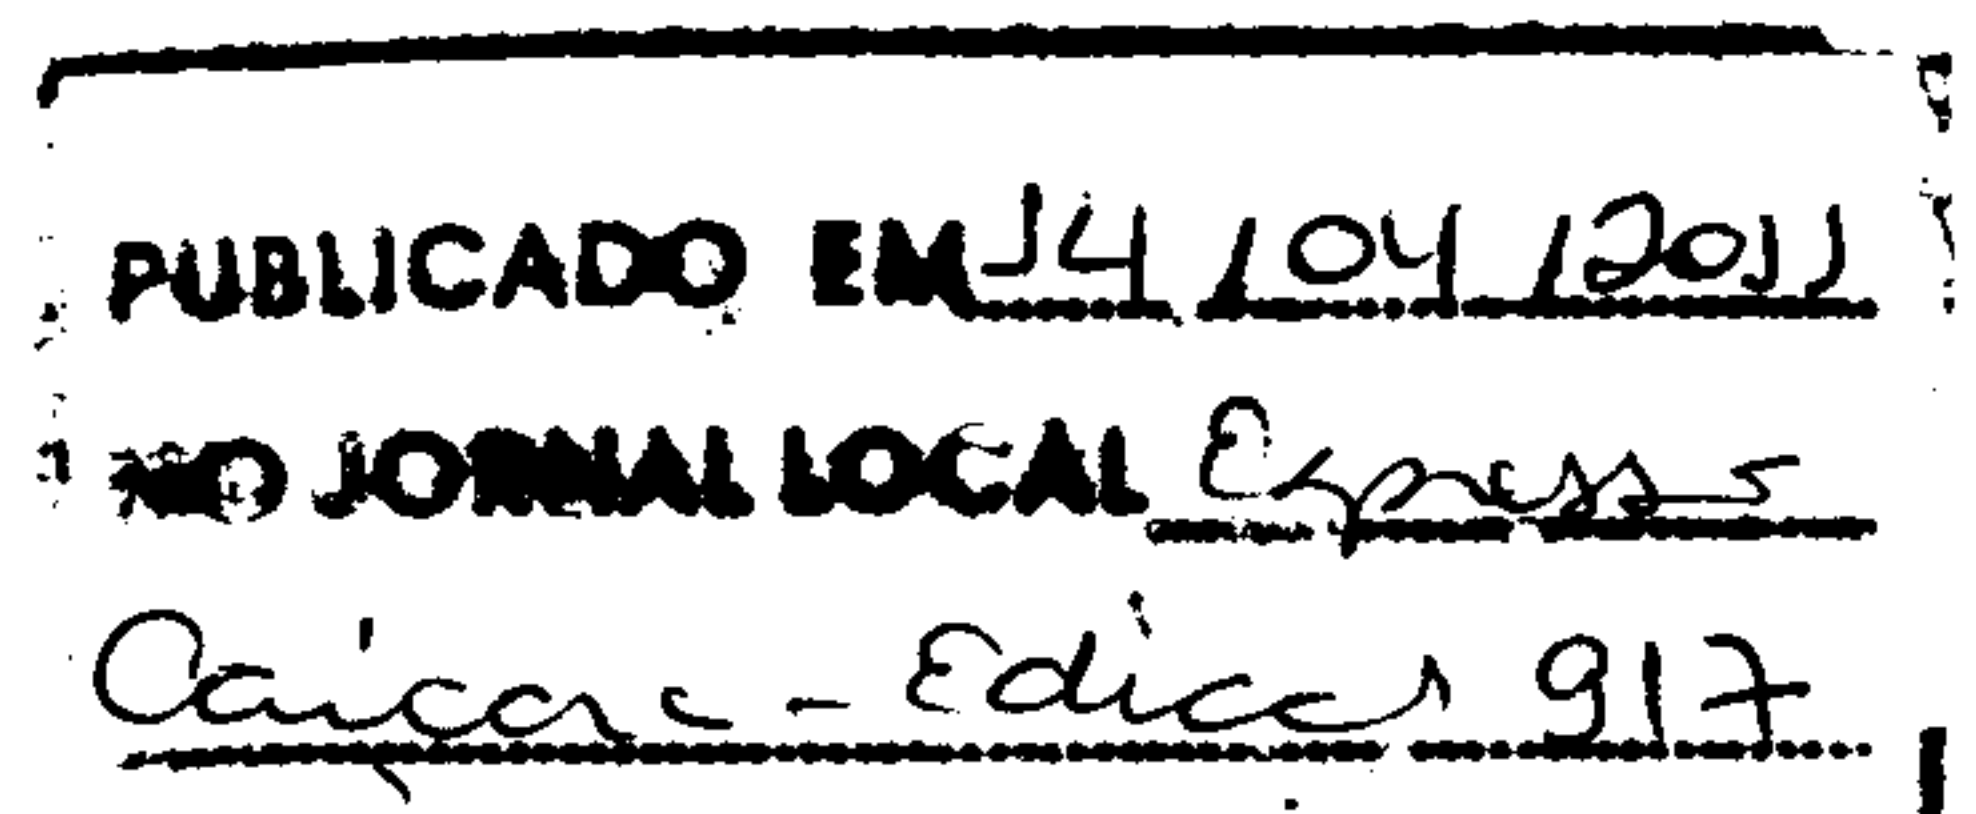 PUBLICADO EM 14/04/2011
NO JORNAL LOCAL Expresso
Caiçara - Edicao 917